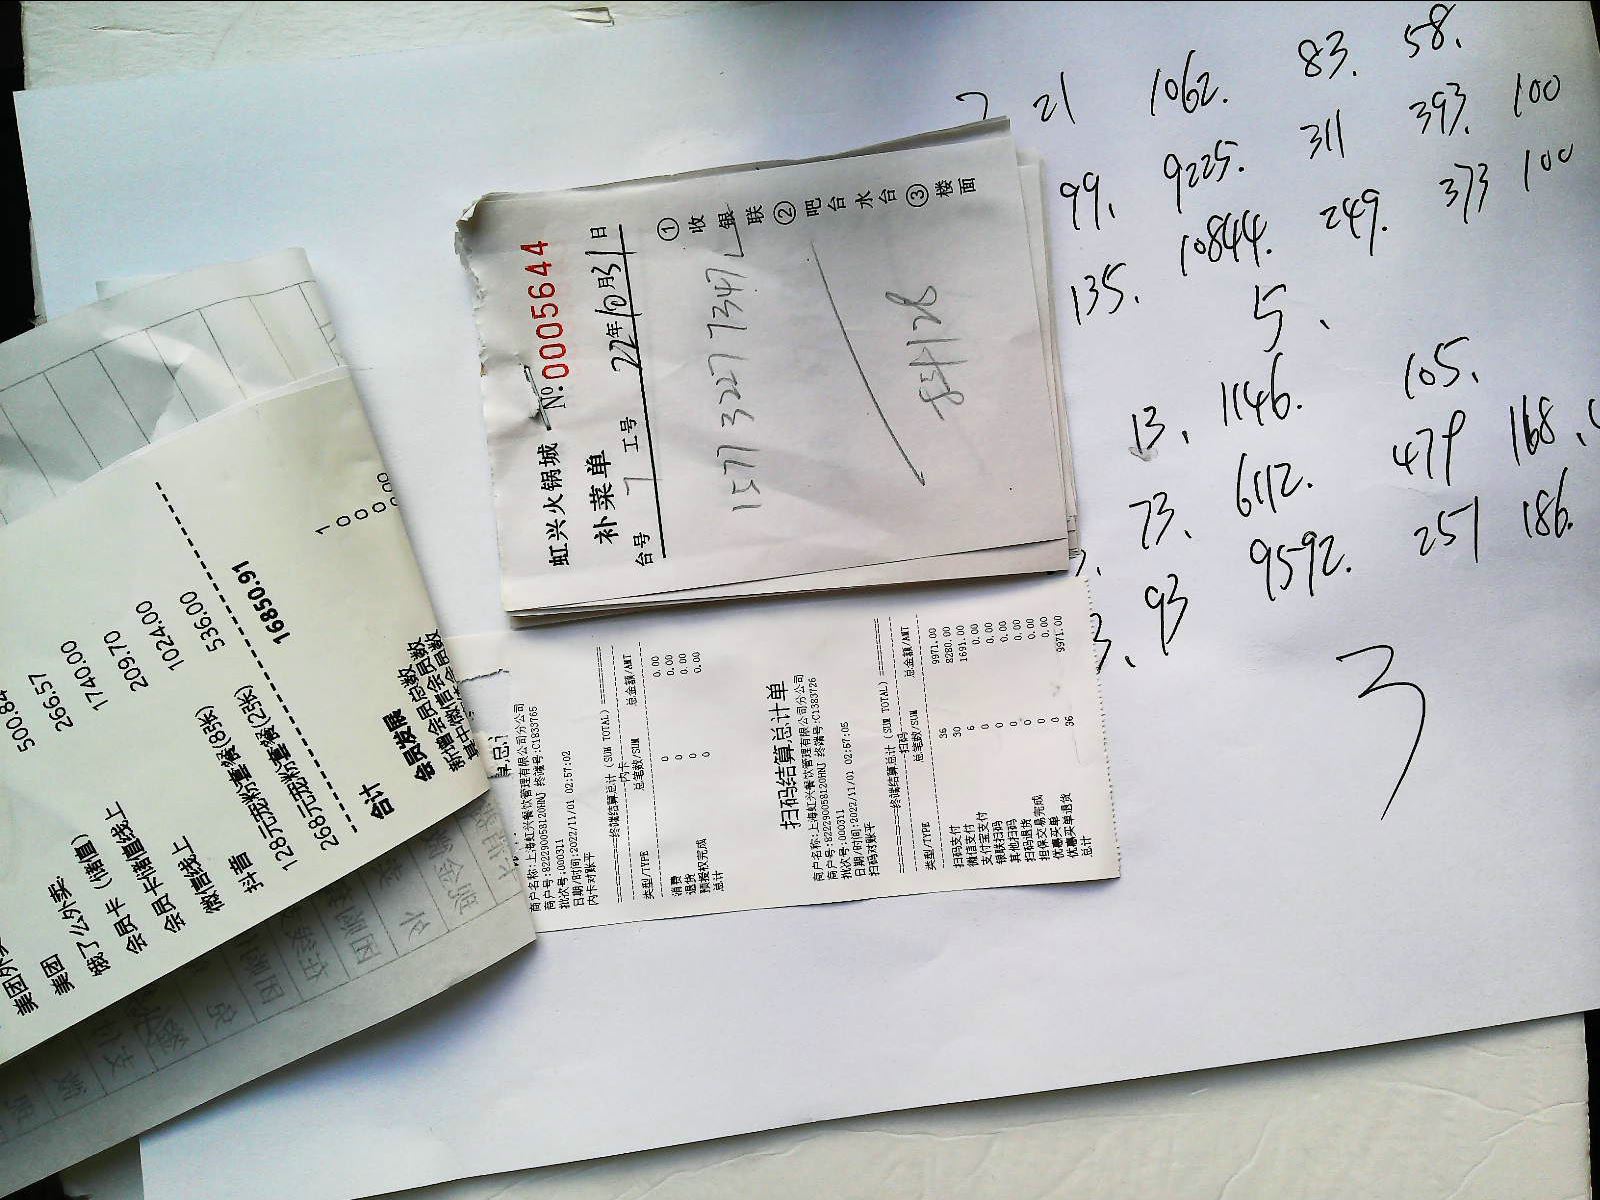 虹兴火锅城 №.0005644
补菜单
台号 7 工号 22年10月31日
① 收银联 ② 吧台水台 ③ 楼面
15713227347
500.84
美团 266.57
饿了么外卖 1740.00
会员卡(储值) 209.70
会员卡储值线上 1024.00
微信线上 536.00
抖音
128元宠粉套餐(8张)
268元宠粉套餐(2张)
合计 16850.91
会员发展
新增会员总数
商户名称:上海虹兴餐饮管理有限公司分公司
终端号:C1383765
批次号:000311
日期/时间:2022/11/01 02:57:02
内卡对账平
终端结算总计(SUM TOTAL)
内卡
类型/TYPE 总笔数/SUM 总金额/AMT
消费 0 0.00
退货 0 0.00
预授权完成 0 0.00
总计 0 0.00
扫码结算总计单
商户名称:上海虹兴餐饮管理有限公司分公司
终端号:C1383726
批次号:000311
日期/时间:2022/11/01 02:57:05
扫码对账平
终端结算总计(SUM TOTAL)
扫码
类型/TYPE 总笔数/SUM 总金额/AMT
扫码支付 36 9971.00
微信支付 30 8280.00
支付宝支付 6 1691.00
银联扫码 0 0.00
其他扫码 0 0.00
扫码退货 0 0.00
担保交易完成 0 0.00
优惠买单 0 0.00
优惠买单退货 0 0.00
总计 36 9971.00
21 1062. 83. 58.
99. 9225. 311 393. 100
135. 10844. 249. 373 100
5.
13. 1146. 105.
73. 6112. 479 168.
93 9592. 257 186.
3